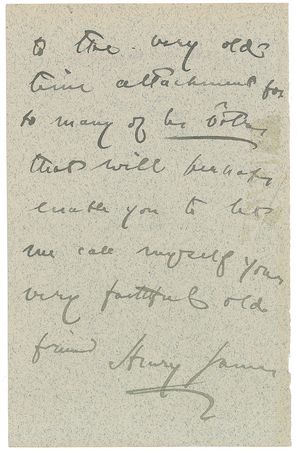 to the very old-
time attachment for
so many of his
that will perhaps
enable you to let
me call myself your
very faithful old
friend Henry James